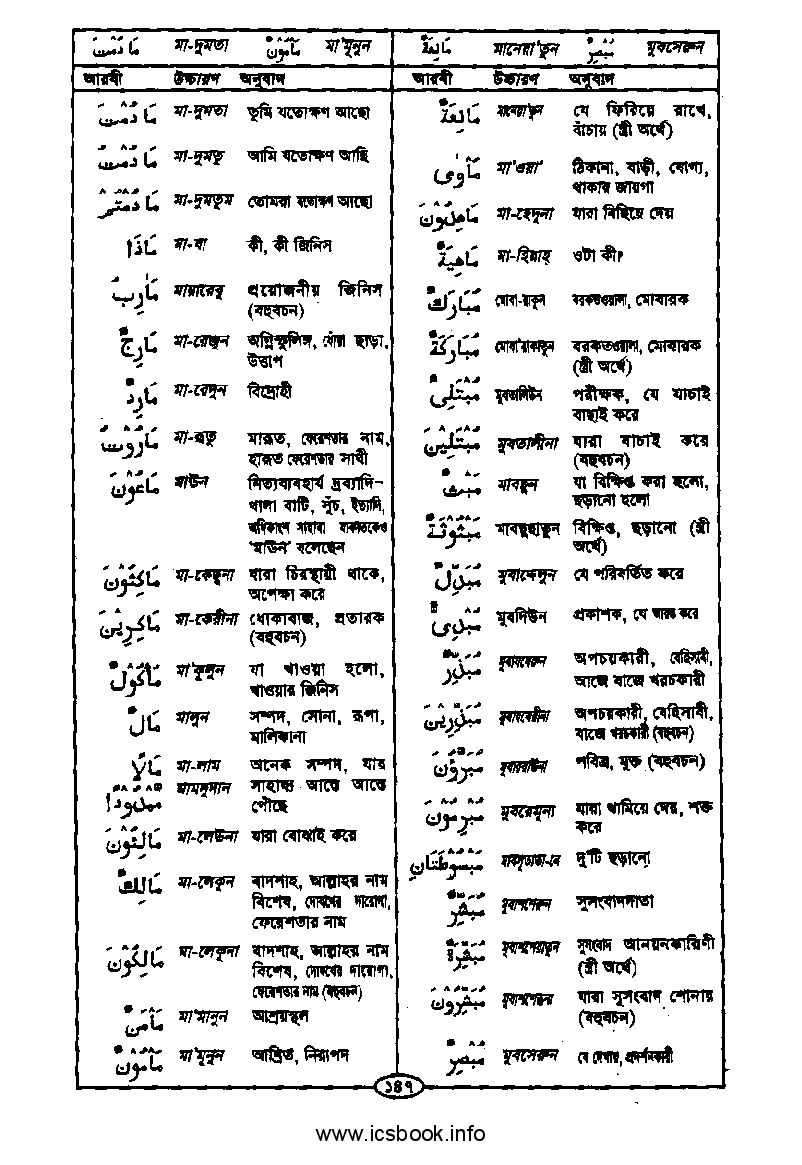 مَا دُمْتَ মা-দুমতা مَأْمُوْنٌ মা'মূনুন
আরবী উচ্চারণ অনুবাদ
مَا دُمْتَ মা-দুমতা তুমি যতোক্ষণ আছো
مَا دُمْتُ মা-দুমতু আমি যতোক্ষণ আছি
مَا دُمْتُمْ মা-দুমতুম তোমরা যতোক্ষণ আছো
مَاذَا মা-যা কী, কী জিনিস
مَاٰرِبُ মায়ারেবু প্রয়োজনীয় জিনিস
(বহুবচন)
مَارِجٌ মা-রেজুন অগ্নিস্ফুলিঙ্গ, ধোঁয়া ছাড়া,
উত্তাপ
مَارِدٌ মা-রেদুন বিদ্রোহী
مَارُوْتُ মা-রূতু মারূত, ফেরেশতার নাম,
হারূত ফেরেশতার সাথী
مَاعُوْنَ মাউন নিত্যব্যবহার্য দ্রব্যাদি-
থালা বাটি, সুঁচ, ইত্যাদি,
অধিকাংশ সাহাবা যাকাতকেও
'মাউন' বলেছেন
مَاكِثُوْنَ মা-কেছুনা যারা চিরস্থায়ী থাকে,
অপেক্ষা করে
مَاكِرِيْنَ মা-কেরীনা ধোকাবাজ, প্রতারক
(বহুবচন)
مَأْكُوْلٌ মা'কূলুন যা খাওয়া হলো,
খাওয়ার জিনিস
مَالٌ মালুন সম্পদ, সোনা, রূপা,
মালিকানা
مَالًا মা-লাম অনেক সম্পদ, যার
مَمْدُوْدًا মামদূদান সাহায্য আস্তে আস্তে
পৌছে
مَالِئُوْنَ মা-লেউনা যারা বোঝাই করে
مَالِكٌ মা-লেকুন বাদশাহ, আল্লাহর নাম
বিশেষ, দোযখের দারোগা,
ফেরেশতার নাম
مَالِكُوْنَ মা-লেকুনা বাদশাহ, আল্লাহর নাম
বিশেষ, দোযখের দারোগা,
ফেরেশতার নাম (বহুবচন)
مَأْمَنٌ মা'মানুন আশ্রয়স্থল
مَأْمُوْنٌ মা'মূনুন আশ্রিত, নিরাপদ
مَانِعَةٌ মানেয়া'তুন مُبْصِرٌ মুবসেরুন
আরবী উচ্চারণ অনুবাদ
مَانِعَةٌ মানেয়া'তুন যে ফিরিয়ে রাখে,
বাঁচায় (স্ত্রী অর্থে)
مَأْوٰى মা'ওয়া ঠিকানা, বাড়ী, যোগ্য,
থাকার জায়গা
مَاهِدُوْنَ মা-হেদুনা যারা বিছিয়ে দেয়
مَاهِيَةٌ মা-হিয়াহ্ ওটা কী?
مُبَارَكٌ মোবা-রাকুন বরকতওয়ালা, মোবারক
مُبَارَكَةٌ মোবা'রাকাতুন বরকতওয়ালা, মোবারক
(স্ত্রী অর্থে)
مُبْتَلِيْ মুবতালিউন পরীক্ষক, যে যাচাই
বাছাই করে
مُبْتَلِيْنَ মুবতালীনা যারা যাচাই করে
(বহুবচন)
مَبْثُثٌ মাবছুছুন যা বিক্ষিপ্ত করা হলো,
ছড়ানো হলো
مَبْثُوْثَةٌ মাবছূছাতুন বিক্ষিপ্ত, ছড়ানো (স্ত্রী
অর্থে)
مُبَدِّلٌ মুবাদ্দেলুন যে পরিবর্তিত করে
مُبْدِئٌ মুবদিউন প্রকাশক, যে আরম্ভ করে
مُبَذِّرٌ মুবাযযেরুন অপচয়কারী, বেহিসাবী,
আজে বাজে খরচকারী
مُبَذِّرِيْنَ মুবাযযেরীনা অপচয়কারী, বেহিসাবী,
বাজে খরচকারী (বহুবচন)
مُبَرَّؤُنَ মুবাররাউনা পবিত্র, মুক্ত (বহুবচন)
مُبْرِمُوْنَ মুবরেমূনা যারা থামিয়ে দেয়, শক্ত
করে
مَبْسُوْطَتَانِ মাবসূতাতা-নে দু'টি ছড়ানো
مُبَشِّرٌ মুবাশ্শেরুন সুসংবাদদাতা
مُبَشِّرَةٌ মুবাশ্শেরাতুন সুসংবাদ আনয়নকারিণী
(স্ত্রী অর্থে)
مُبَشِّرُوْنَ মুবাশ্শেরূনা যারা সুসংবাদ শোনায়
(বহুবচন)
مُبْصِرٌ মুবসেরুন যে দেখায়, প্রদর্শনকারী
১৪৭
www.icsbook.info